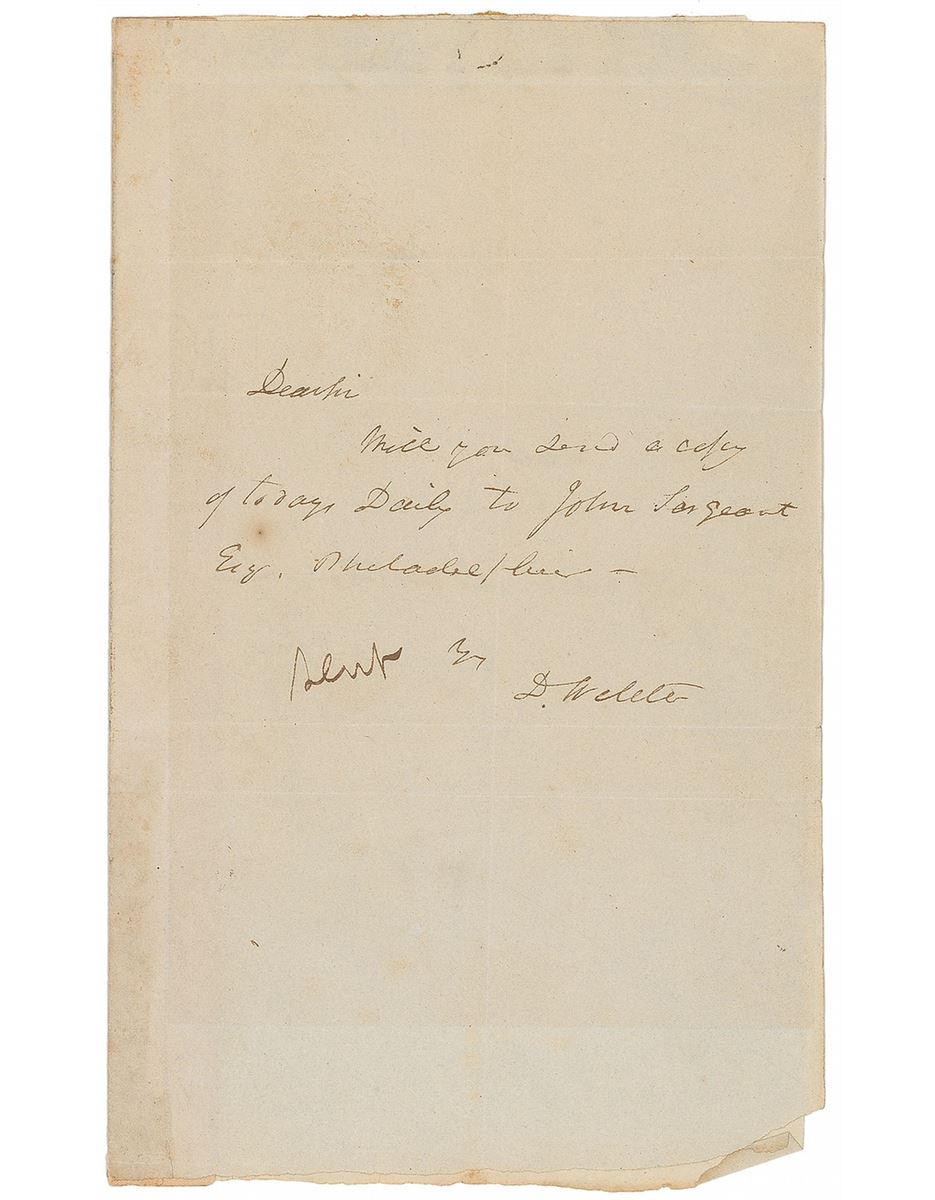 Dear Sir
Will you send a copy
of todays Daily to John Sergeant
Esq. Philadelphia –
Sent Yrs
D. Webster